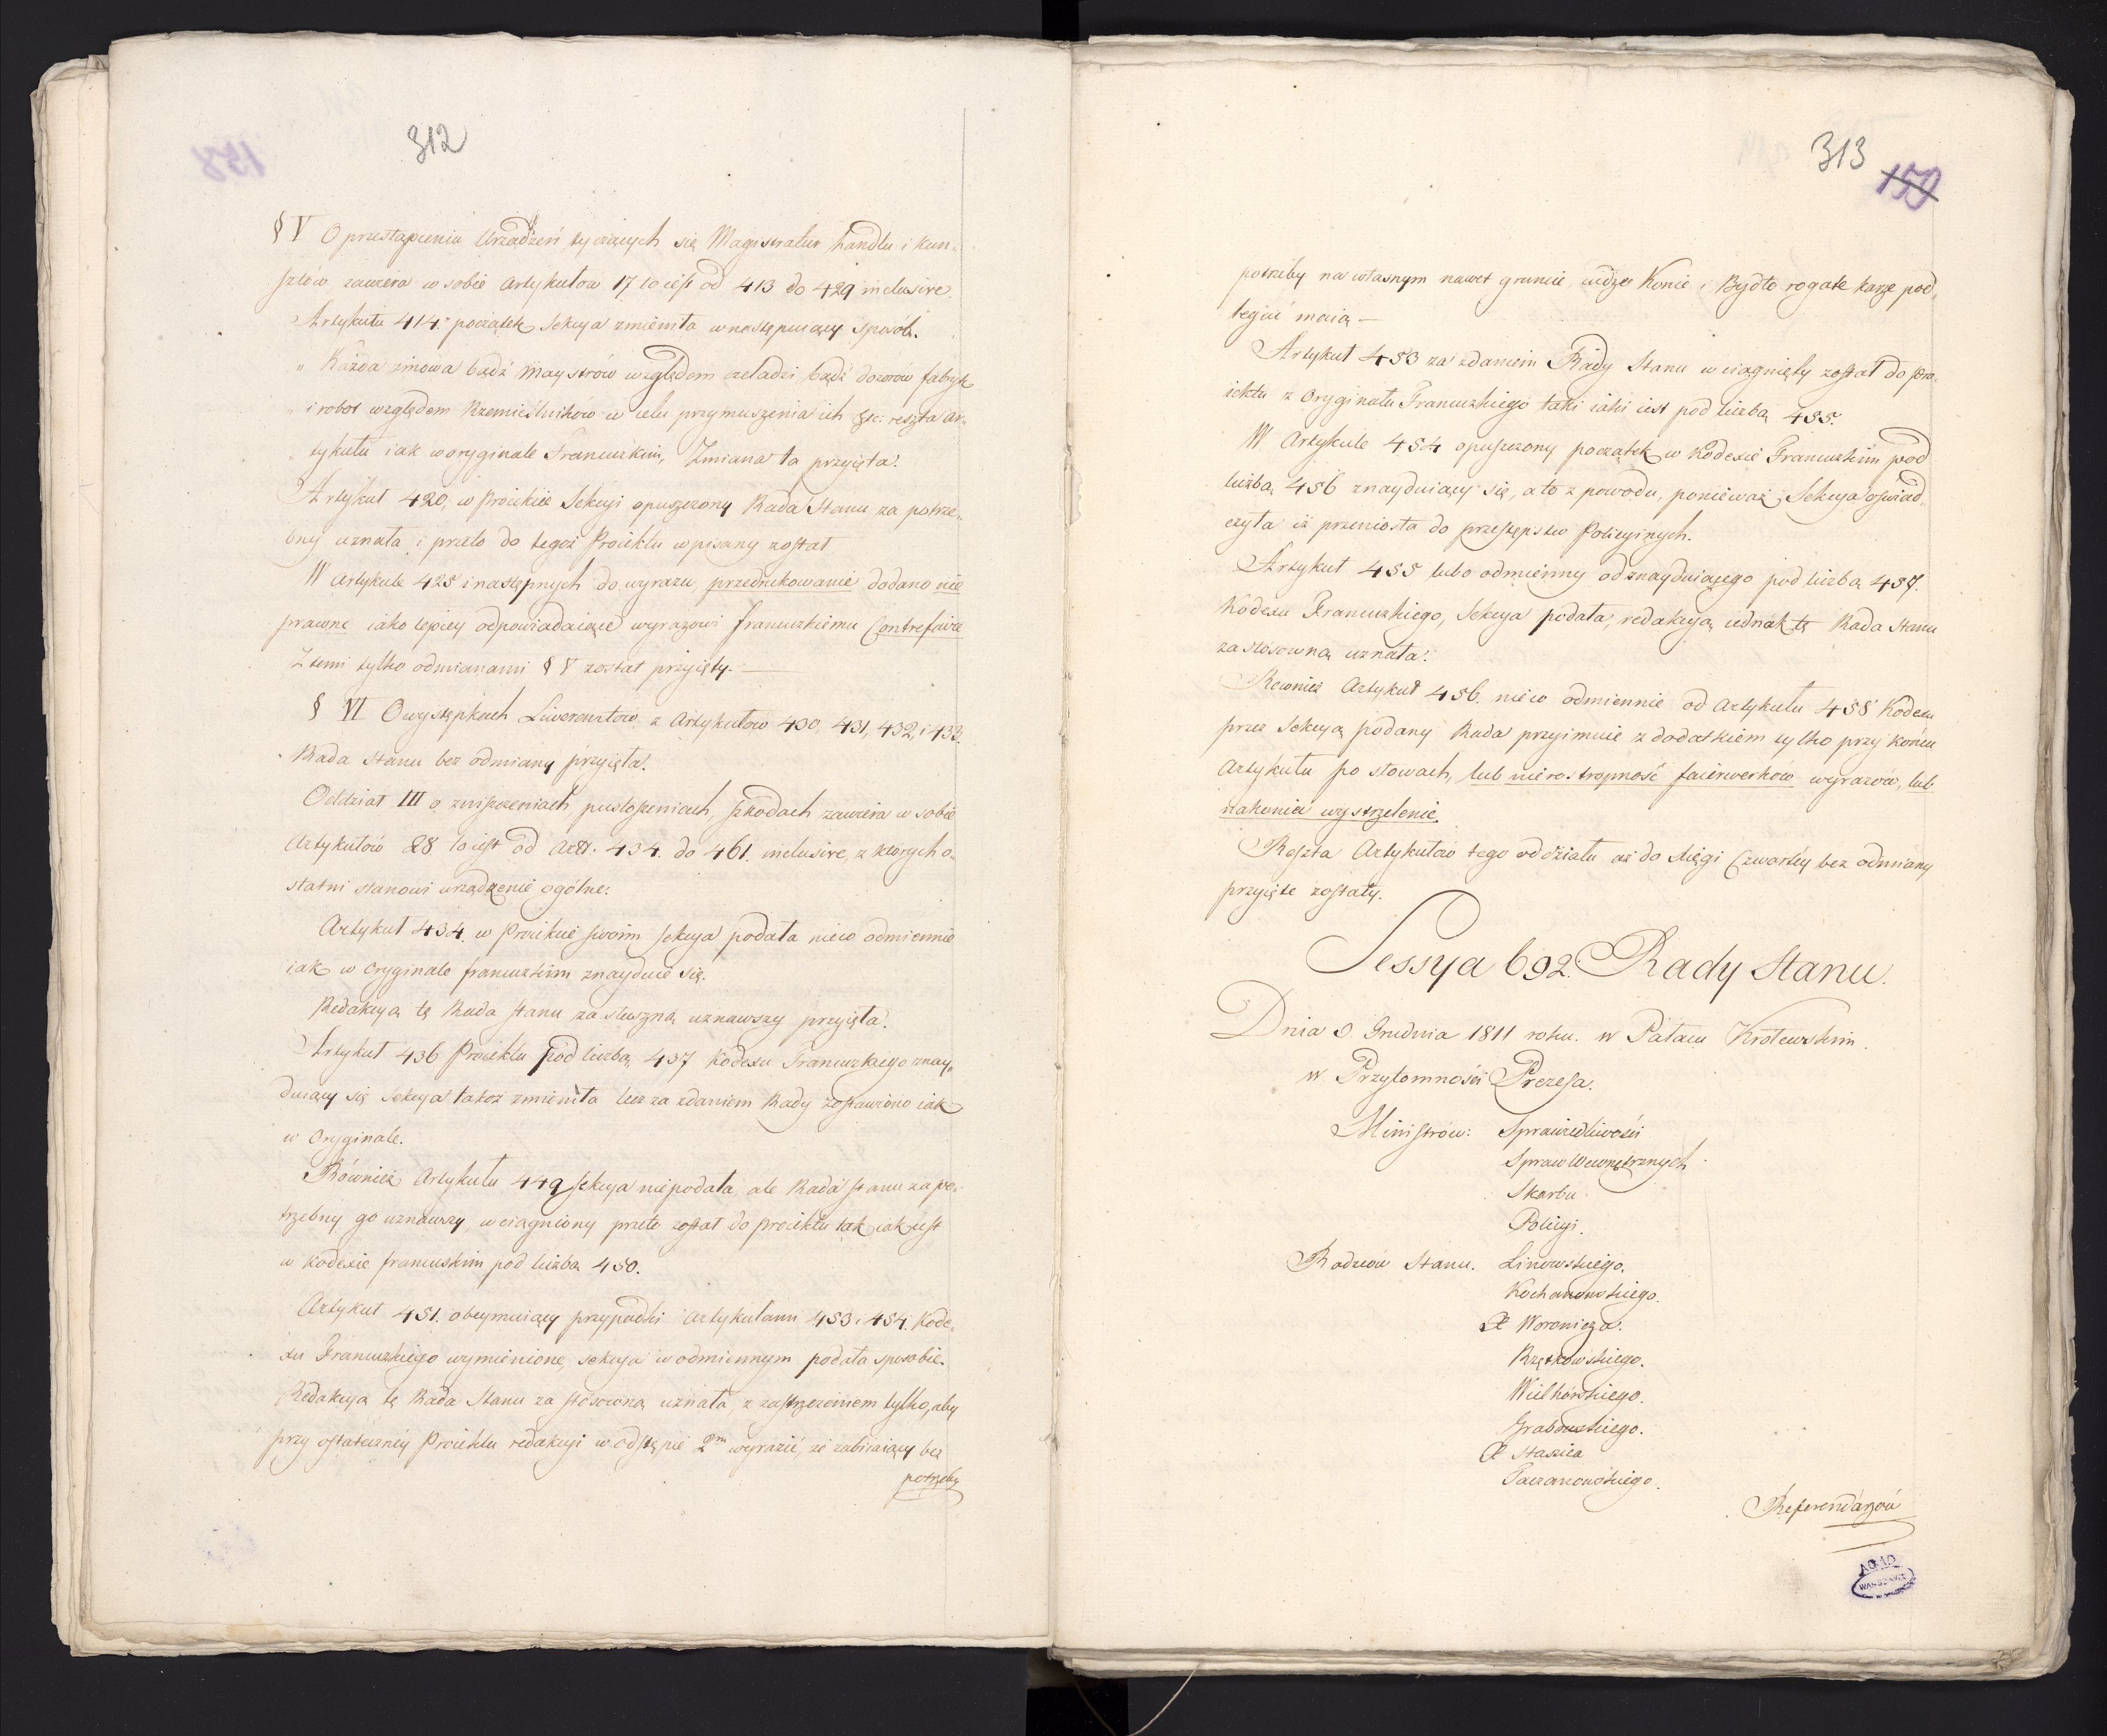 312
§ V O przestąpieniu Urządzeń tyczących się Magistratur handlu i kun-
sztów, zawiera w sobie artykułów 17 to iest od 413 do 429 inclusive.
Artykułu 414. początek Sekcya zmieniła w następuiący sposób.
„ Każda zmowa bądź maystrów względem czeladzi bądź dozorów fabryk
„ i robot względem Rzemieślników w celu przymuszenia ich &c: reszta ar-
„ tykułu iak w oryginale Francuzkim, Zmiana ta przyięta.
Artykuł 420, w Proiekcie Sekcyi opuszczony Rada Stanu za potrze-
bny uznała i przeto do tegoż Proiektu wpisany został
W artykule 425 i następnych do wyrazu, przedrukowanie dodano nie
prawne iako lepiey odpowiadaiące wyrazowi francuzkiemu Contrefaire
Z temi tylko odmianami § V został przyięty. —
§ VI O występkach Liwerantów z Artykułów 430, 431, 432, i 433.
Rada Stanu bez odmiany przyięła.
Oddział III o zniszczeniach, pustoszeniach, szkodach zawiera w sobie
Artykułów 28 to iest od Art. 434. do 461. inclusive, z ktorych o-
statni stanowi urządzenie ogólne.
Artykuł 434. w Proiekcie swoim sekcya podała nieco odmiennie
iak w oryginale francuzkim znayduie się.
Redakcyą tę Rada Stanu za słuszną uznawszy przyięła.
Artykuł 436 Proiektu pod liczbą 437 Kodexu Francuzkiego znay-
duiący się Sekcya takoż zmieniła lecz za zdaniem Rady zostawiono iak
w Oryginale.
Również Artykułu 449 sekcya niepodała, ale Rada stanu za po-
trzebny go uznawszy, wciągniony przeto został do proiektu tak iak iest
w Kodexie francuskim pod liczbą 450.
Artykuł 451. obeymuiący przypadki Artykułami 453 i 454. Kode-
xu Francuzkiego wymienione, sekcya w odmiennym podała sposobie.
Redakcyą tę Rada Stanu za stosowną uznała, z zastrzeżeniem tylko, aby
przy ostateczney Proiektu redakcyi w odstępie 2m wyrazić, że zabiiaiący bez
potrzeby
313
159
potrzeby na własnym nawet gruncie, cudze Konie i Bydło rogate karze pod-
legać maią —
Artykuł 453 za zdaniem Rady Stanu wciągnięty został do pro-
iektu z Oryginału Francuzkiego taki iaki iest pod liczbą 455.
W Artykule 454 opuszczony początek w Kodexie Francuzkim pod
liczbą 456 znayduiący się, a to z powodu, ponieważ Sekcya oświad-
czyła iż przeniosła do przestępstw Policyinych.
Artykuł 455 lubo odmienny od znayduiącego pod liczbą 457.
Kodexu Francuzkiego, Sekcya podała, redakcyą iednak tę Rada Stanu
za stosowną uznała.
Rownież Artykuł 456. nieco odmiennie od Artykułu 458 Kodexu
przez Sekcyą podany Rada przyimuie z dodatkiem tylko przy końcu
Artykułu po słowach, lub nierostropność faierwerków wyrazów, lub
nakoniec wystrzelenie.
Reszta Artykułów tego oddziału aż do Xięgi Czwartéy bez odmiany
przyięte zostały.
Sessya 692. Rady Stanu.
Dnia 9 Grudnia 1811 roku. w Pałacu Krolewskim.
w Przytomności Prezesa.
Ministrów: Sprawiedliwości
Spraw Wewnętrznych
Skarbu
Policyi.
Radzców Stanu. Linowskiego.
Kochanowskiego.
X Woronicza.
Rzętkowskiego.
Wielhórskiego.
Grabowskiego.
X Staszica
Taczanowskiego.
Referendarzów
AGAD
WARSZAWA